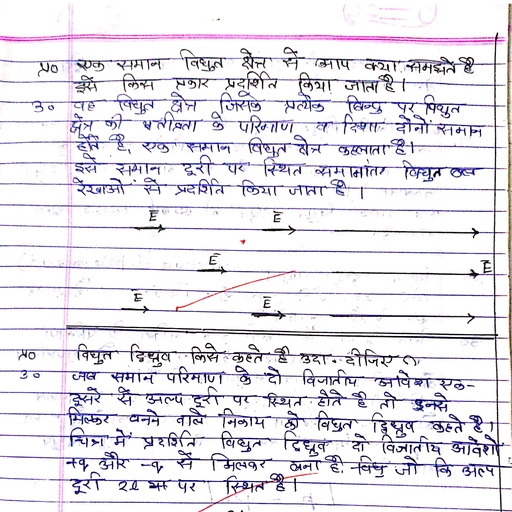 प्र० एक समान विधुत क्षेत्र से आप क्या समझते है
इसे किस प्रकार प्रदर्शित किया जाता है।
उ० वह विधुत क्षेत्र जिसके प्रत्येक बिन्दु पर विधुत
क्षेत्र की तीव्रता के परिमाण व दिशा दोनों समान
होते है, एक समान विधुत क्षेत्र कहलाता है।
इसे समान दूरी पर स्थित समामांतर विधुत बल
रेखाओं से प्रदर्शित किया जाता है।
E E
E E
E E
प्र० विधुत द्विध्रुव किसे कहते है उदा० दीजिए
उ० जब समान परिमाण के दो विजातीय आवेश एक-
दूसरे से अल्प दूरी पर स्थित होते है तो इनसे
मिलकर बनने वाले निकाय को विधुत द्विध्रुव कहते है।
चित्र में प्रदर्शित विधुत द्विध्रुव दो विजातीय आवेशो
+q और -q से मिलकर बना है, जो कि अल्प
दूरी 2l पर स्थित है।